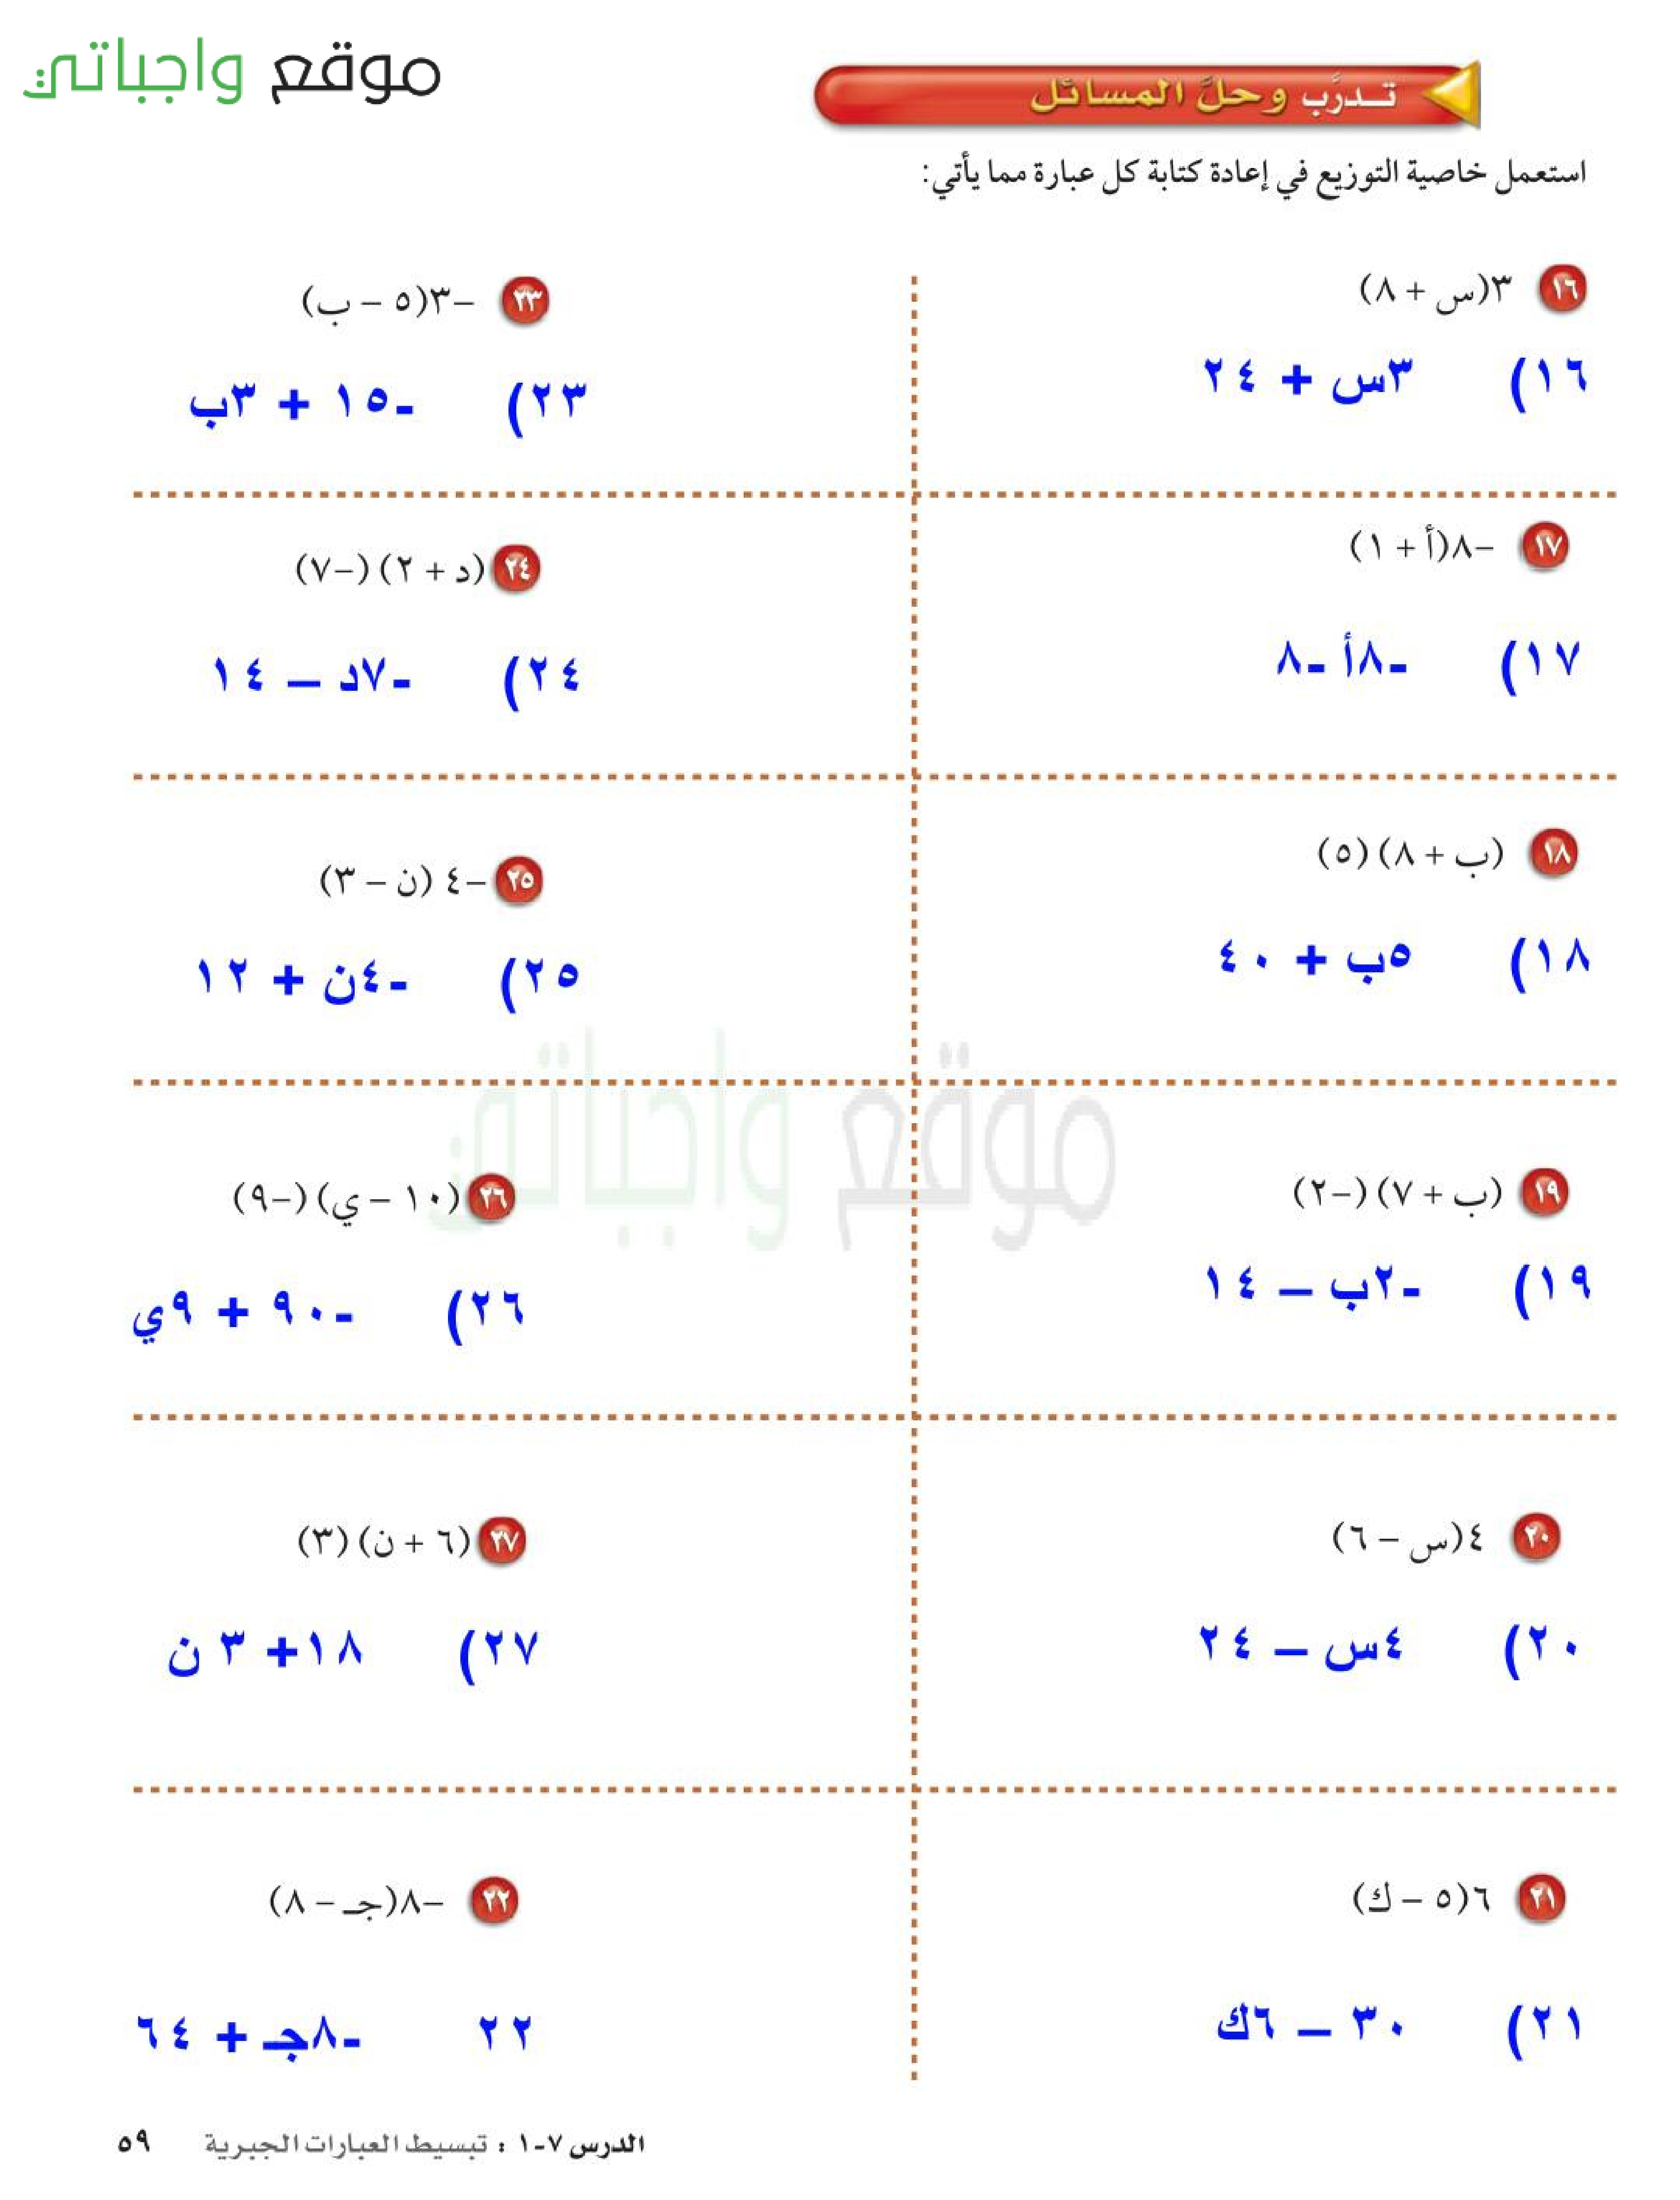 موقع واجباتي
تدرَّب وحلَّ المسائل
استعمل خاصية التوزيع في إعادة كتابة كل عبارة مما يأتي:
١٦ ٣(س + ٨)
١٦) ٣س + ٢٤
١٧ –٨(أ + ١)
١٧) -٨أ -٨
١٨ (ب + ٨) (٥)
١٨) ٥ب + ٤٠
١٩ (ب + ٧) (–٢)
١٩) -٢ب – ١٤
٢٠ ٤(س – ٦)
٢٠) ٤س – ٢٤
٢١ ٦(٥ – ك)
٢١) ٣٠ – ٦ك
٢٣ –٣(٥ – ب)
٢٣) -١٥ + ٣ب
٢٤ (د + ٢) (–٧)
٢٤) -٧د – ١٤
٢٥ –٤ (ن – ٣)
٢٥) -٤ن + ١٢
٢٦ (١٠ – ي) (–٩)
٢٦) -٩٠ + ٩ي
٢٧ (٦ + ن) (٣)
٢٧) ١٨+ ٣ ن
٢٢ –٨(جـ – ٨)
٢٢ -٨جـ + ٦٤
موقع واجباتي
الدرس ٧-١ : تبسيط العبارات الجبرية ٥٩